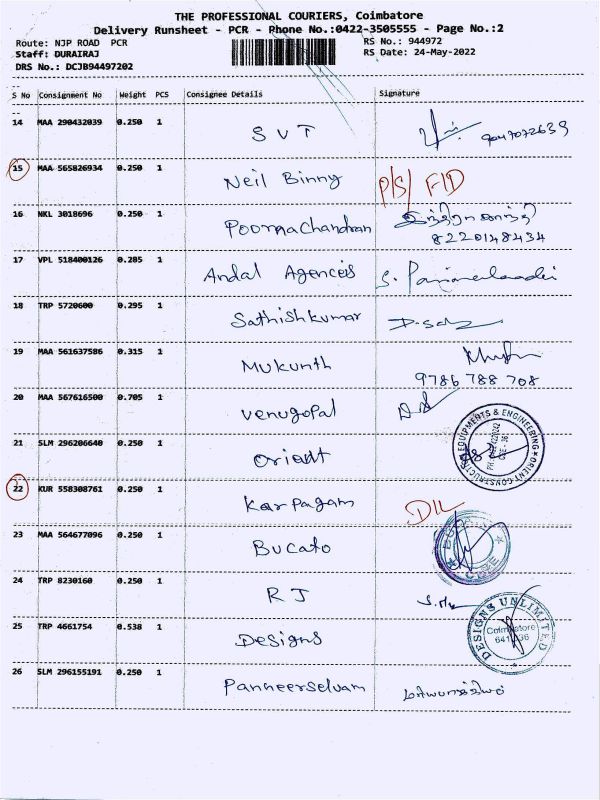 THE PROFESSIONAL COURIERS, Coimbatore
Delivery Runsheet - PCR - Phone No.:0422-3505555 - Page No.:2
Route: NJP ROAD PCR RS No.: 944972
Staff: DURAIRAJ RS Date: 24-May-2022
DRS No.: DCJB94497202
S No Consignment No Weight PCS Consignee Details Signature
14 MAA 290432039 0.250 1 SVT 9047072639
15 MAA 565826934 0.250 1 Neil Binny P/S/ FID
16 NKL 3018696 0.250 1 Poornachandran
8220148434
17 VPL 518400126 0.285 1 Andal Agenceis
18 TRP 5720600 0.295 1 Sathishkumar
19 MAA 561637586 0.315 1 Mukunth
9786 788 708
20 MAA 567616500 0.705 1 Venugopal
21 SLM 296206640 0.250 1 Oriant
EQUIPMENTS & ENGINEERING ORIENT CONSTRUCTION
22 KUR 558308761 0.250 1 Karpagam DIL
23 MAA 564677096 0.250 1 Bucato
24 TRP 8230160 0.250 1 RJ
25 TRP 4661754 0.538 1 Designs
DESIGNS UNLIMITED
Coimbatore
641 036
26 SLM 296155191 0.250 1 Panneerselvam